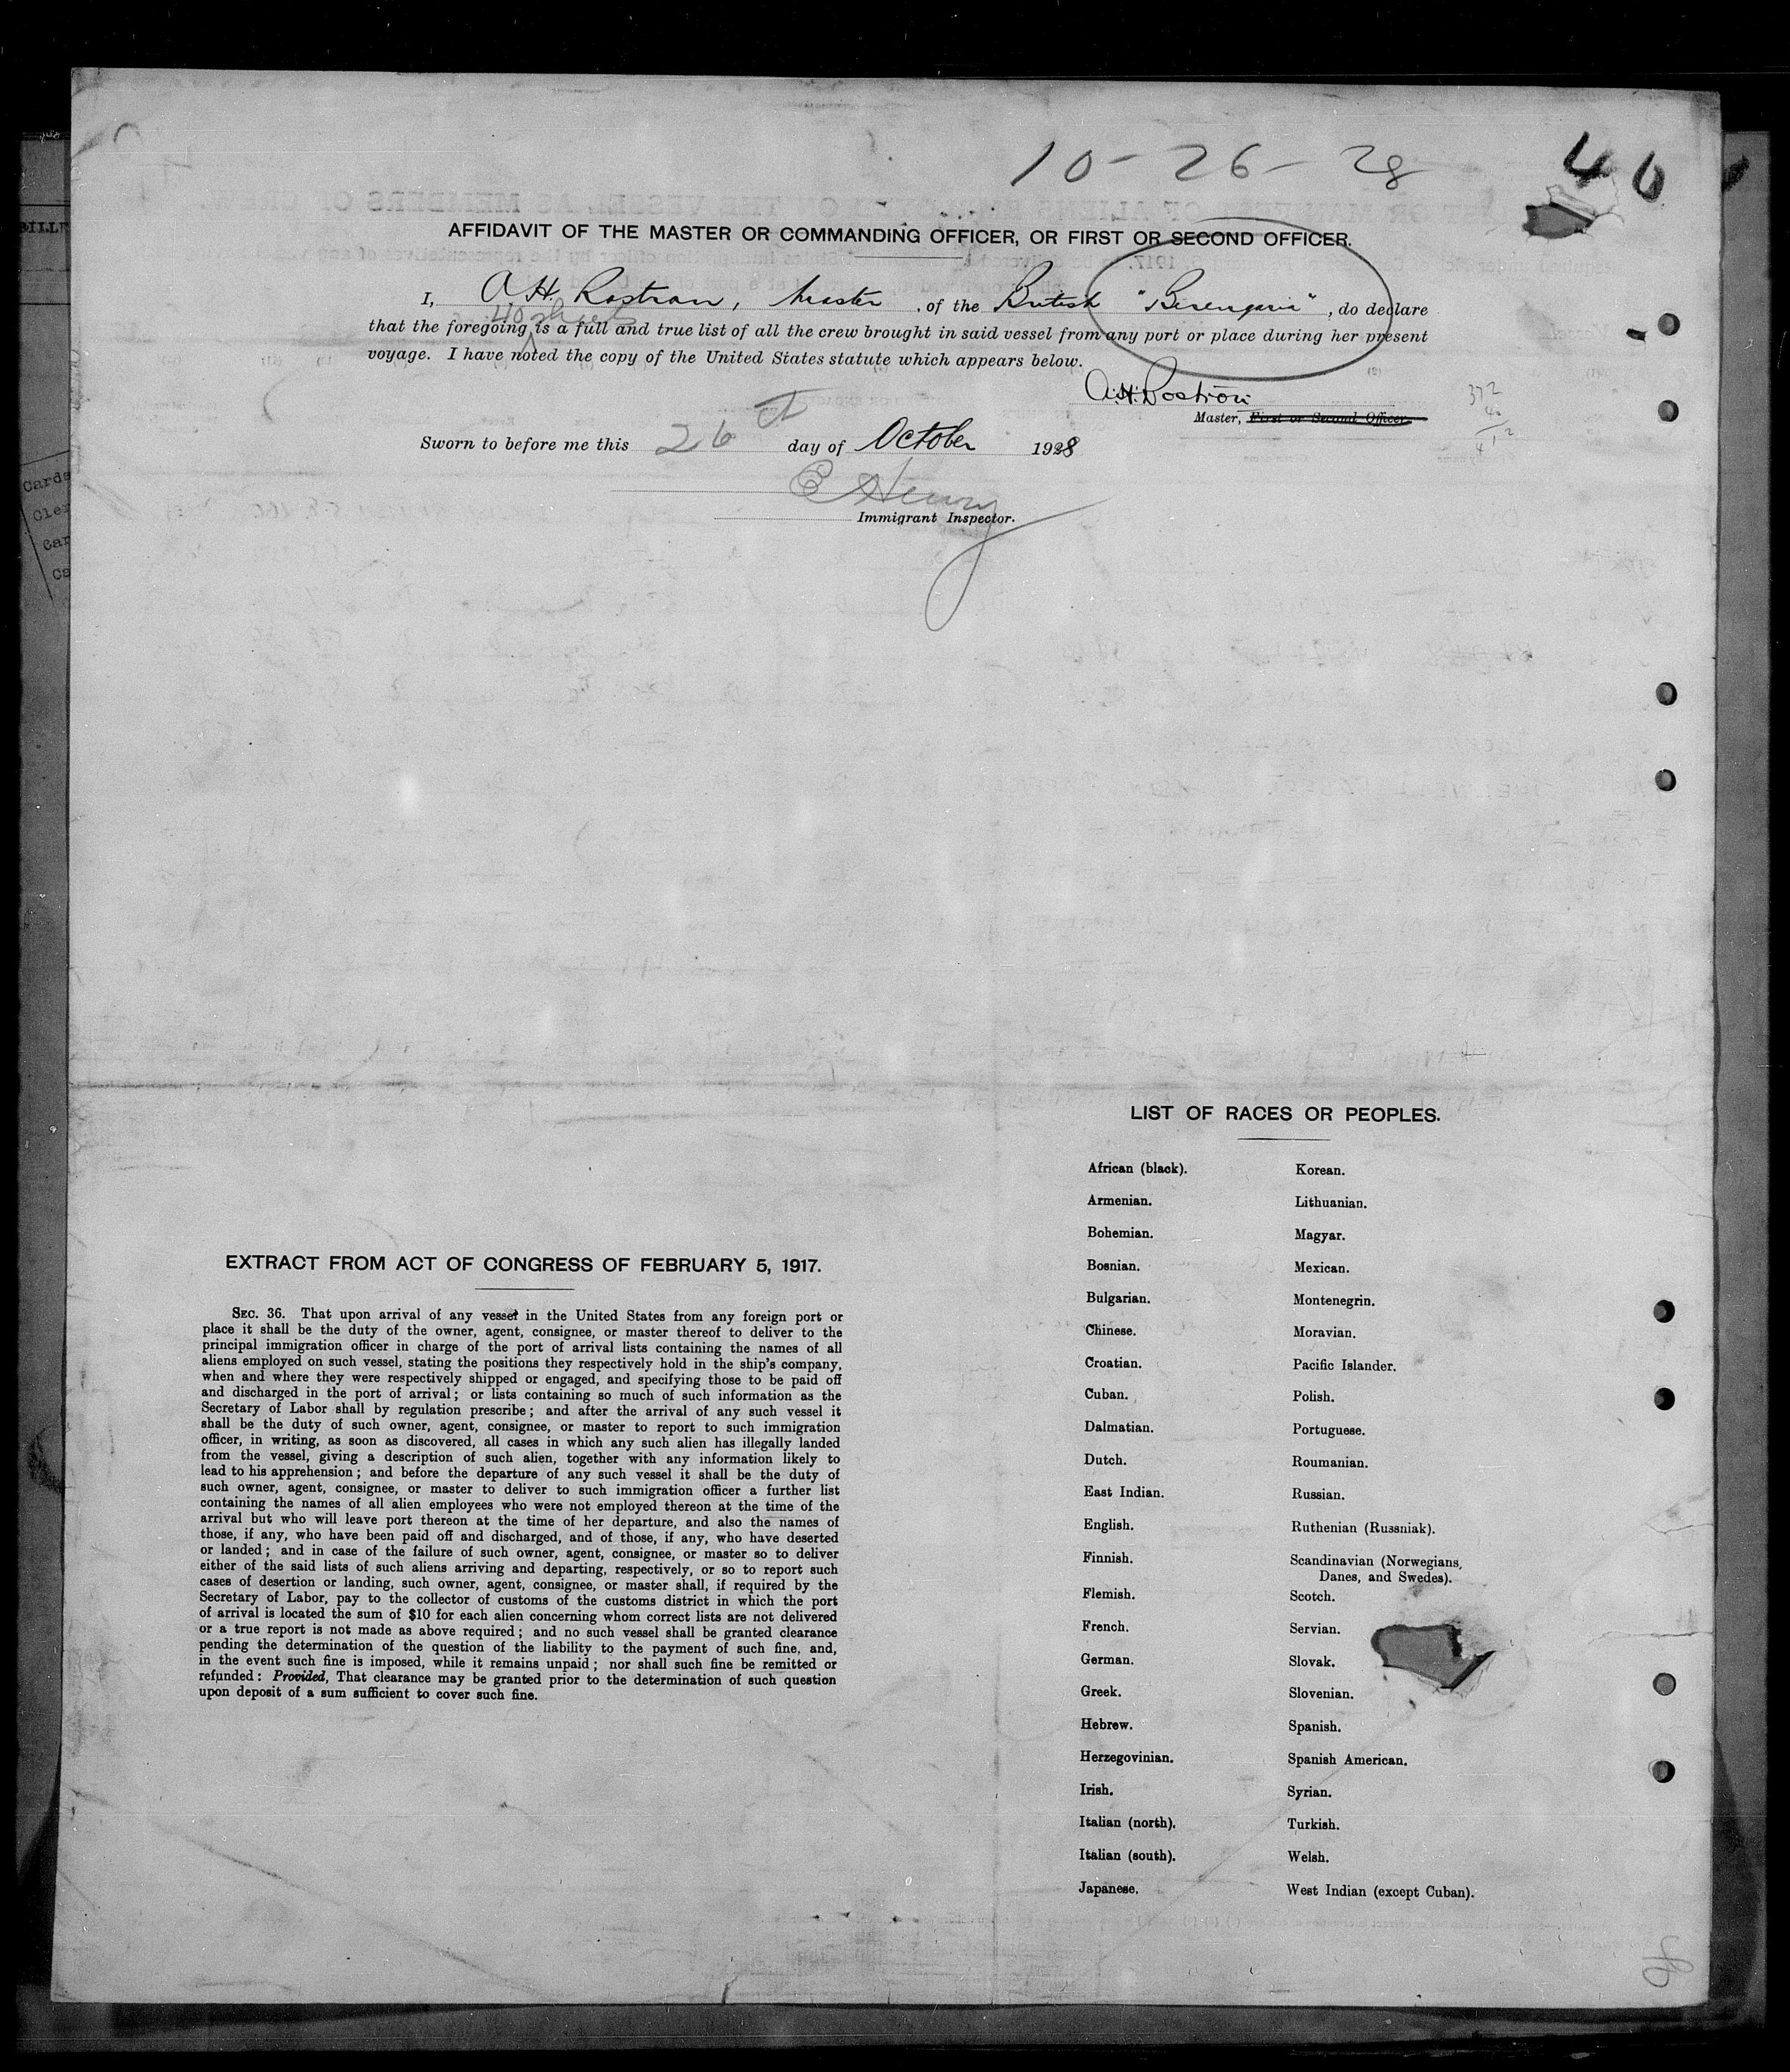 10-26-28
40
AFFIDAVIT OF THE MASTER OR COMMANDING OFFICER, OR FIRST OR SECOND OFFICER.
I, A. H. Rostron, Master, of the British "Berengaria", do declare
40 sheets
that the foregoing is a full and true list of all the crew brought in said vessel from any port or place during her present
voyage. I have noted the copy of the United States statute which appears below.
A.H. Rostron
Master, First or Second Officer.
372
40
412
Sworn to before me this 26th day of October 1928
E Henry
Immigrant Inspector.
LIST OF RACES OR PEOPLES.
African (black). Korean.
Armenian. Lithuanian.
Bohemian. Magyar.
Bosnian. Mexican.
Bulgarian. Montenegrin.
Chinese. Moravian.
Croatian. Pacific Islander.
Cuban. Polish.
Dalmatian. Portuguese.
Dutch. Roumanian.
East Indian. Russian.
English. Ruthenian (Russniak).
Finnish. Scandinavian (Norwegians,
Danes, and Swedes).
Flemish. Scotch.
French. Servian.
German. Slovak.
Greek. Slovenian.
Hebrew. Spanish.
Herzegovinian. Spanish American.
Irish. Syrian.
Italian (north). Turkish.
Italian (south). Welsh.
Japanese. West Indian (except Cuban).
EXTRACT FROM ACT OF CONGRESS OF FEBRUARY 5, 1917.
SEC. 36. That upon arrival of any vessel in the United States from any foreign port or
place it shall be the duty of the owner, agent, consignee, or master thereof to deliver to the
principal immigration officer in charge of the port of arrival lists containing the names of all
aliens employed on such vessel, stating the positions they respectively hold in the ship's company,
when and where they were respectively shipped or engaged, and specifying those to be paid off
and discharged in the port of arrival; or lists containing so much of such information as the
Secretary of Labor shall by regulation prescribe; and after the arrival of any such vessel it
shall be the duty of such owner, agent, consignee, or master to report to such immigration
officer, in writing, as soon as discovered, all cases in which any such alien has illegally landed
from the vessel, giving a description of such alien, together with any information likely to
lead to his apprehension; and before the departure of any such vessel it shall be the duty of
such owner, agent, consignee, or master to deliver to such immigration officer a further list
containing the names of all alien employees who were not employed thereon at the time of the
arrival but who will leave port thereon at the time of her departure, and also the names of
those, if any, who have been paid off and discharged, and of those, if any, who have deserted
or landed; and in case of the failure of such owner, agent, consignee, or master so to deliver
either of the said lists of such aliens arriving and departing, respectively, or so to report such
cases of desertion or landing, such owner, agent, consignee, or master shall, if required by the
Secretary of Labor, pay to the collector of customs of the customs district in which the port
of arrival is located the sum of $10 for each alien concerning whom correct lists are not delivered
or a true report is not made as above required; and no such vessel shall be granted clearance
pending the determination of the question of the liability to the payment of such fine, and,
in the event such fine is imposed, while it remains unpaid; nor shall such fine be remitted or
refunded: Provided, That clearance may be granted prior to the determination of such question
upon deposit of a sum sufficient to cover such fine.